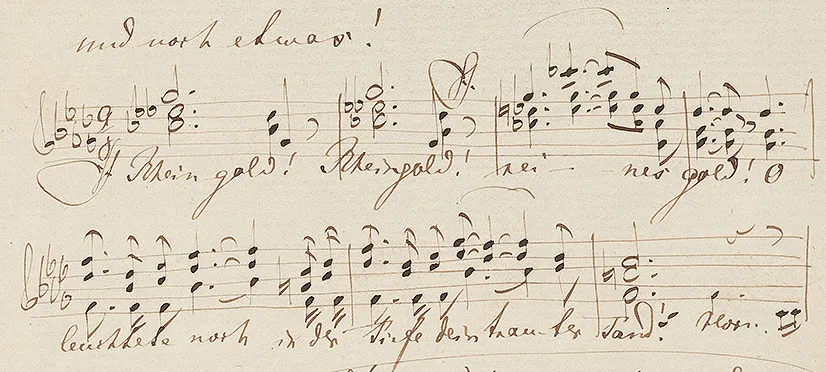 und noch etwas!
Rheingold! Rheingold! rei-nes gold! O
leuchtete noch in der Tiefe dein trauter Tand!